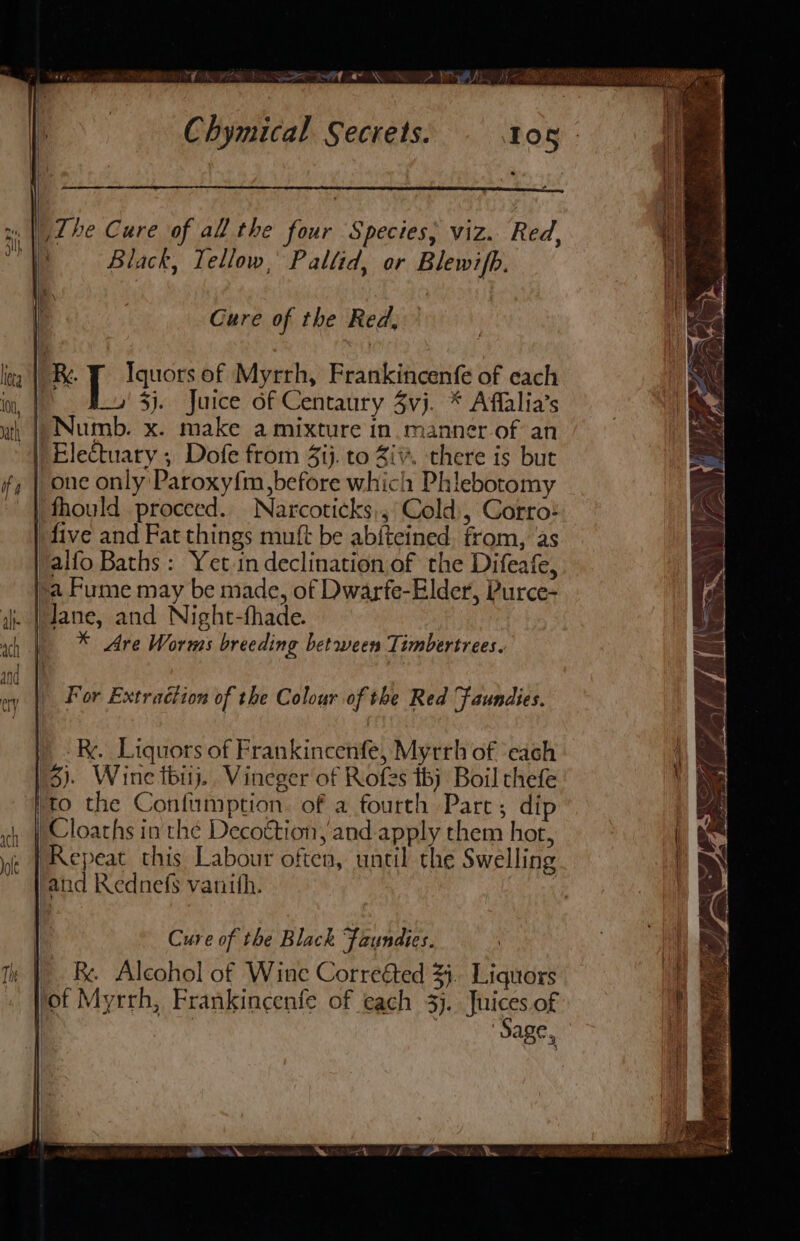 Chymical Secrets. 105
The Cure of all the four Species, viz. Red,
Black, Yellow, Pallid, or Blewiſh.
Cure of the Red.
℞. LIquors of Myrrh, Frankincenſe of each
ʒj. Juice of Centaury ℥vj. * Aſſalia's
Numb. x. make a mixture in manner of an
Electuary ; Doſe from ʒij. to ℥iv. there is but
one only Paroxyſm, before which Phlebotomy
ſhould proceed. Narcoticks, Cold, Corro-
ſive and Fat things muſt be abſteined from, as
alſo Baths : Yet in declination of the Diſeaſe,
a Fume may be made, of Dwarfe-Elder, Purce-
lane, and Night-ſhade.
* Are Worms breeding between Timbertrees.
For Extraction of the Colour of the Red Jaundies.
℞. Liquors of Frankincenſe, Myrrh of each
℥j. Wine ℔iij. Vineger of Roſes ℔j Boil theſe
to the Conſumption of a fourth Part ; dip
Cloaths in the Decoction, and apply them hot,
Repeat this Labour often, until the Swelling
and Redneſs vaniſh.
Cure of the Black Jaundies.
℞. Alcohol of Wine Corrected ℥j. Liquors
of Myrrh, Frankincenſe of each ʒj. Juices of
Sage,